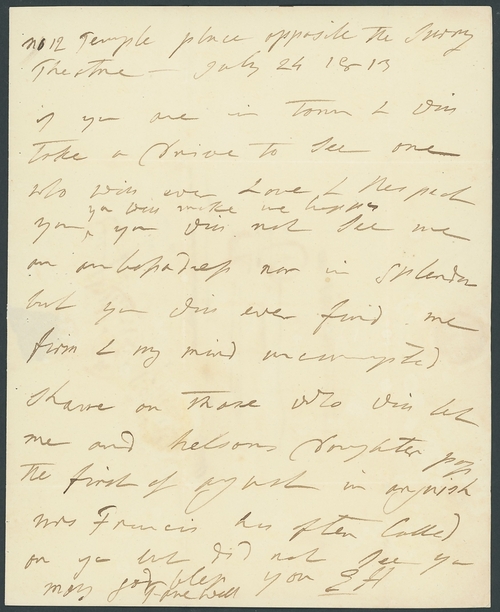 no 12 Temple place opposite the Surry
Theatre – July 24 1813
if you are in Town & will
take a Drive to see one
who will ever Love & Respect
you will make me happy
you you will not see me
an ambassadress nor in splendor
but you will ever find me
firm & my mind uncorrupted
Shame on those who will let
me and Nelsons Daughter pass
the first of august in anguish
mrs Francis has often Called
on you but did not see you
may god bless you EH
Farewell